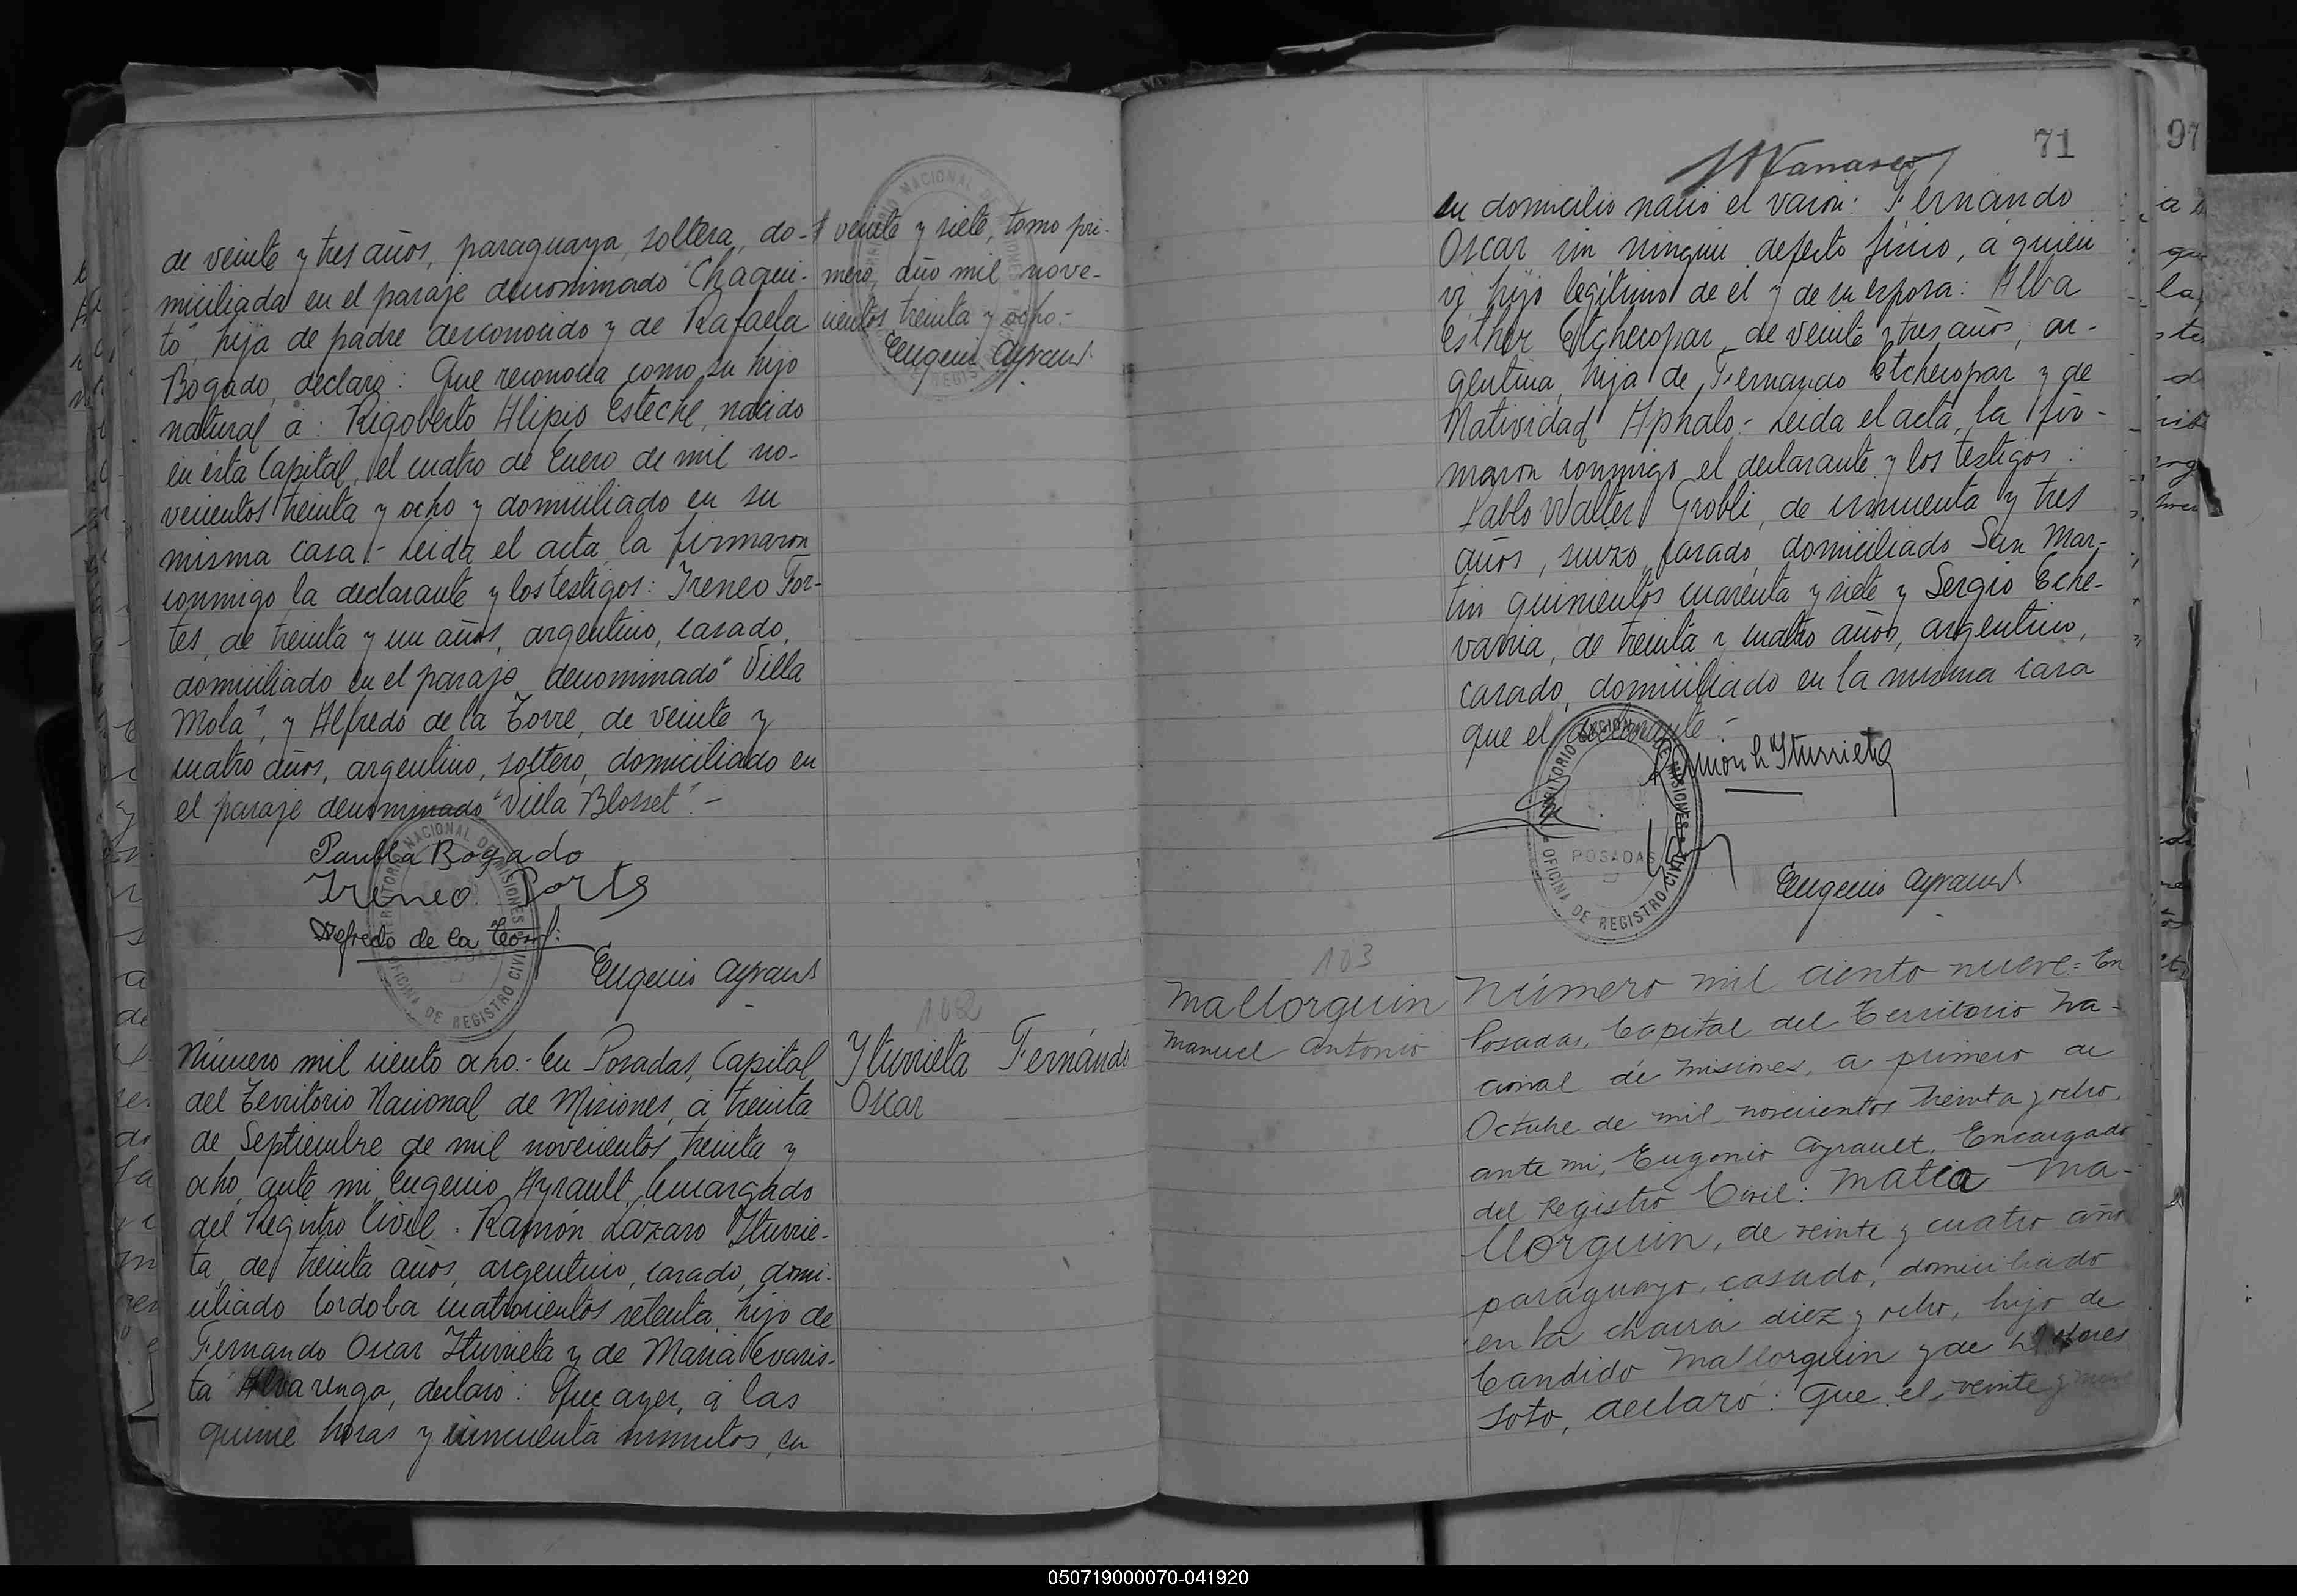 de veinte y tres años, paraguaya, soltera, do-
miciliada en el paraje denominado "Chaqui-
to", hija de padre desconocido y de Rafaela
Bogado, declaró: Que reconocía como su hijo
natural á: Rigoberto Alipio Esteche, nacido
en ésta Capital, el cuatro de Enero de mil no-
vecientos treinta y ocho y domiciliado en su
misma casa.- Leida el acta, la firmaron
conmigo la declarante y los testigos: Ireneo For-
tes, de treinta y un años, argentino, casado,
domiciliado en el paraje denominado "Villa
Mola", y Alfredo de la Torre, de veinte y
cuatro años, argentino, soltero, domiciliado en
el paraje denominado "Villa Blosset".-
Bogado
Ireneo
Alfredo de la Torre
Eugenio Ayrault
veinte y siete, tomo pri-
mero, año mil nove-
cientos treinta y ocho.-
Eugenio Ayrault
102
Iturrieta Fernando
Oscar
Número mil ciento ocho.- En Posadas, Capital
del Territorio Nacional de Misiones, á treinta
de Septiembre de mil novecientos treinta y
ocho, ante mi, Eugenio Ayrault, Encargado
del Registro Civil: Ramón Lázaro Iturrie-
ta, de treinta años, argentino, casado, domi-
ciliado Cordoba cuatrocientos setenta, hijo de
Fernando Oscar Iturrieta y de Maria Evaris-
ta Alvarenga, declaró: Que ayer, á las
quince horas y cincuenta minutos, en
71
97
su domicilio nació el varón: Fernando
Oscar sin ningun defecto físico, á quien
ví, hijo legítimo de el y de su esposa: Alba
Esther Etchecopar, de veinte y tres años, ar-
gentina, hija de Fernando Etchecopar y de
Natividad Aphalo.- Leida el acta, la fir-
maron conmigo el declarante y los testigos:
Pablo Walter Grobli, de cincuenta y tres
años, suizo, casado, domiciliado San Mar-
tin quinientos cuarenta y siete y Sergio Eche-
varria, de treinta y cuatro años, argentino,
casado, domiciliado en la misma casa
que el declarante.-
Ramón L Iturrieta
TERRITORIO NACIONAL DE MISIONES
POSADAS
OFICINA DE REGISTRO CIVIL
Eugenio Ayrault
103
Mallorquin
Manuel Antonio
Número mil ciento nueve= En
Posadas, Capital del Territorio Na-
cional de Misiones, a primero de
Octubre de mil novecientos treinta y ocho,
ante mi, Eugenio Ayrault, Encargado
del Registro Civil: Ma-
llorquin, de veinte y cuatro año
paraguayo, casado, domiciliado
en la chacra diez y ocho, hijo de
Candido Mallorquin y de
Soto, declaró: Que el veinte y nueve
050719000070-041920